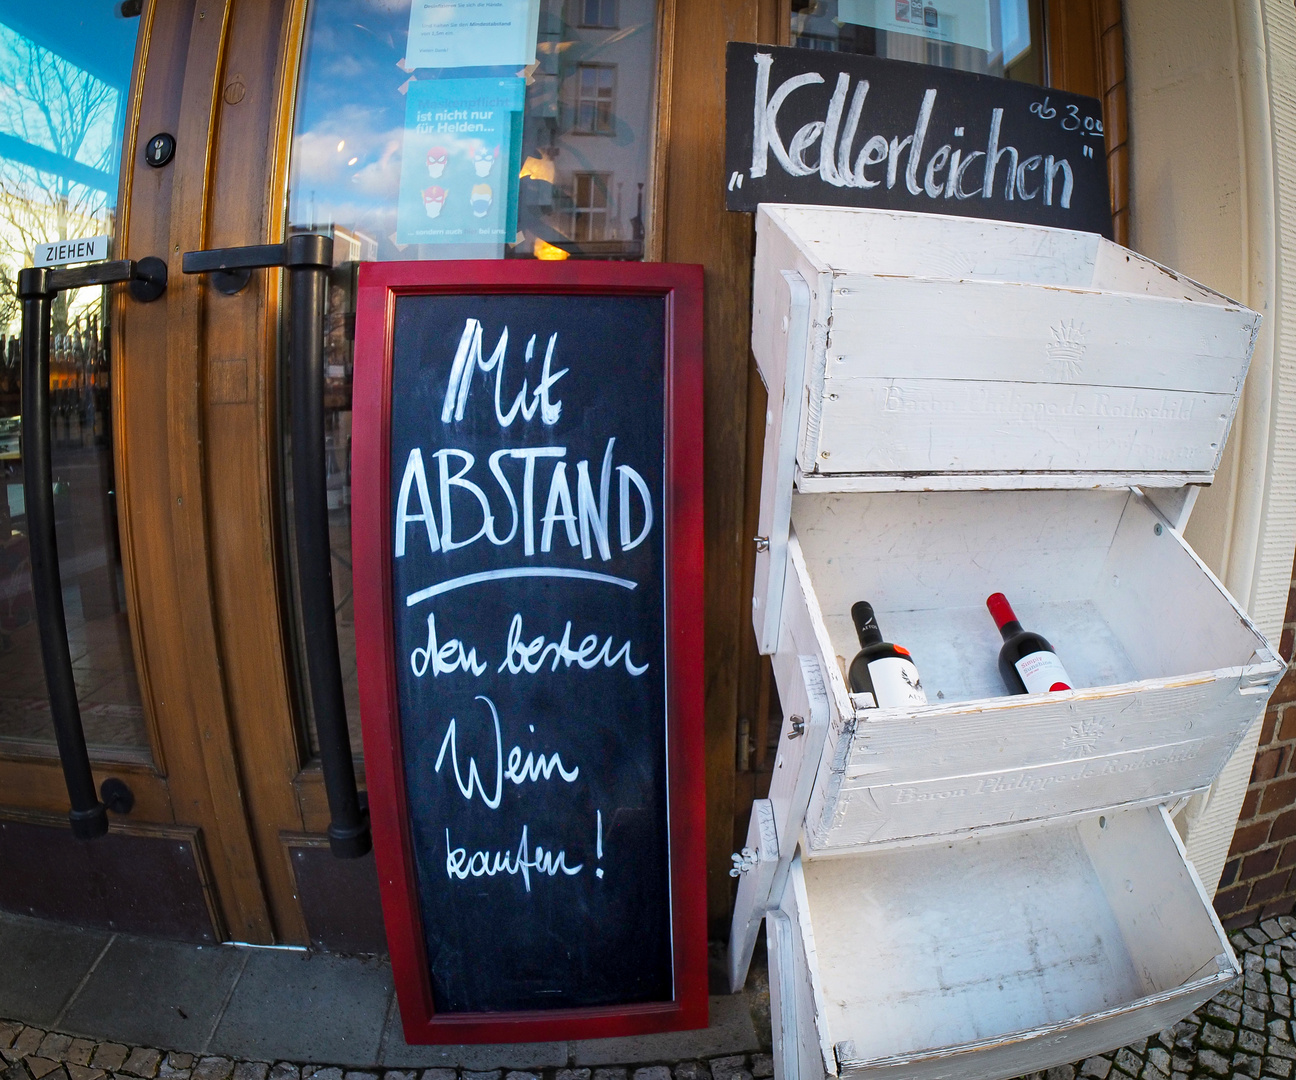 Mindestabstand
Maskenpflicht
ist nicht nur
für Helden...
... sondern auch
ZIEHEN
Mit
ABSTAND
den besten
Wein
kaufen!
ab 3.00
„Kellerleichen"
Baron Philippe de Rothschild
Baron Philippe de Rothschild